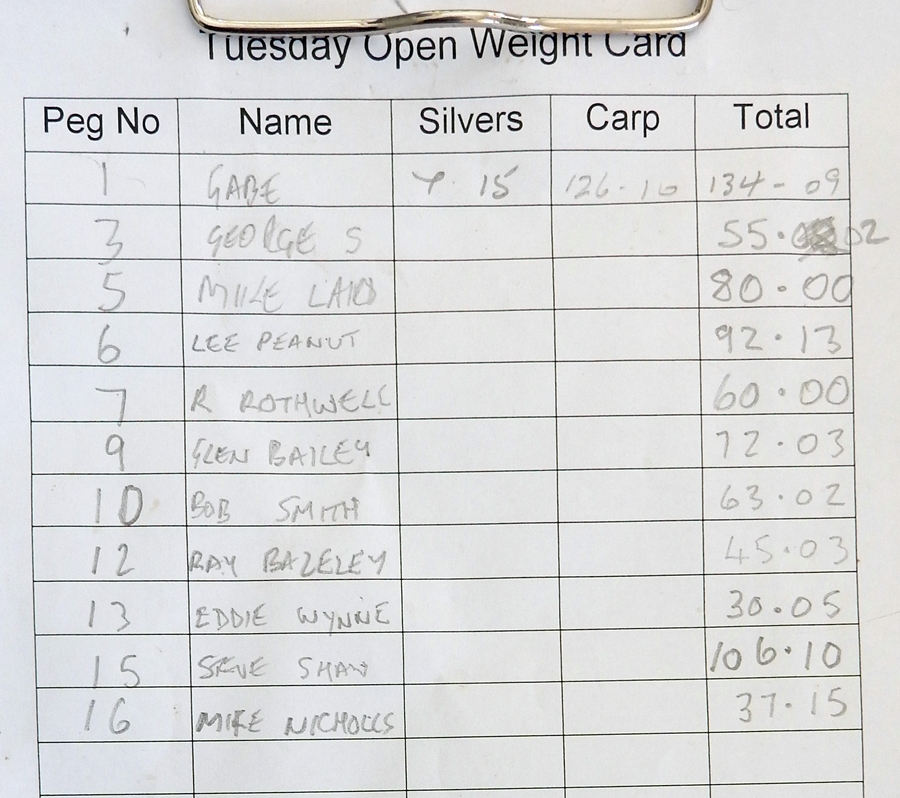 Tuesday Open Weight Card
Peg No Name Silvers Carp Total
1 GABE 7. 15 126-10 134-09
3 GEORGE S 55.02
5 MIKE LAID 80.00
6 LEE PEANUT 92.13
7 R ROTHWELL 60.00
9 GLEN BAILEY 72.03
10 BOB SMITH 63.02
12 RAY BAZELEY 45.03
13 EDDIE WYNNE 30.05
15 STEVE SHAW 106.10
16 MIKE NICHOLLS 37.15